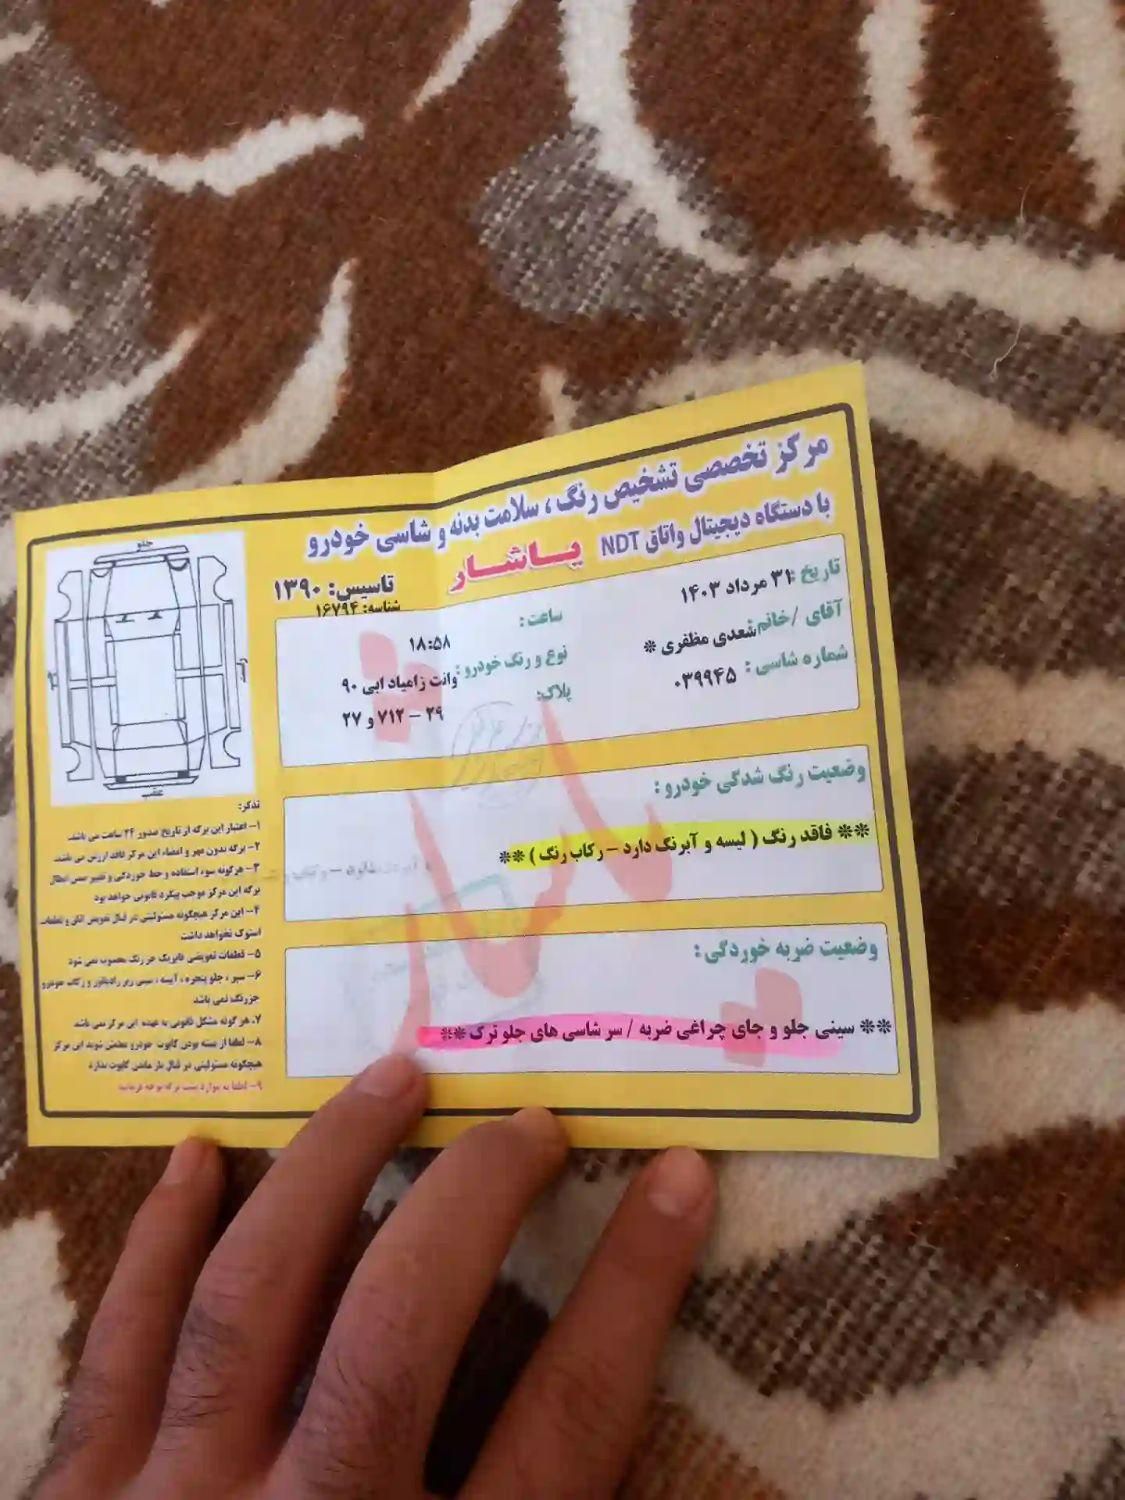 مرکز تخصصی تشخیص رنگ ، سلامت بدنه و شاسی خودرو
با دستگاه دیجیتال واتاق NDT یـاشـار
تاسیس: ۱۳۹۰
شناسه: ۱۶۷۹۴
تاریخ : ۳۱ مرداد ۱۴۰۳
ساعت : ۱۸:۵۸
آقای / خانم : شعدی مظفری *
نوع و رنگ خودرو : وانت زامیاد ابی ۹۰
شماره شاسی : ۰۳۹۹۴۵
پلاک: ۲۹ – ۷۱۲ و ۲۷
وضعیت رنگ شدگی خودرو :
** فاقد رنگ ( لیسه و آبرنگ دارد – رکاب رنگ ) **
وضعیت ضربه خوردگی :
** سینی جلو و جای چراغی ضربه / سر شاسی های جلو ترک **
جلو
عقب
تذکر:
۱- اعتبار این برگه از تاریخ صدور ۲۴ ساعت می باشد.
۲- برگه بدون مهر و امضاء این مرکز فاقد ارزش می باشد.
۳- هرگونه سوء استفاده و خط خوردگی و تغییر ضمن ابطال
برگه این مرکز موجب پیگرد قانونی خواهد بود
۴- این مرکز هیچگونه مسئولیتی در قبال تعویض اتاق و قطعات
استوک نخواهد داشت
۵- قطعات تعویضی فابریک جز رنگ محسوب نمی شود
۶- سپر ، جلو پنجره ، آیینه ، سینی زیر رادیاتور و رکاب خودرو
جزرنگ نمی باشد
۷. هر گونه مشکل قانونی به عهده این مرکز نمی باشد
۸- لطفا از بسته بودن کاپوت خودرو مطمئن شوید این مرکز
هیچگونه مسئولیتی در قبال باز ماندن کاپوت ندارد
۹- لطفا به موارد پشت برگه توجه فرمائید